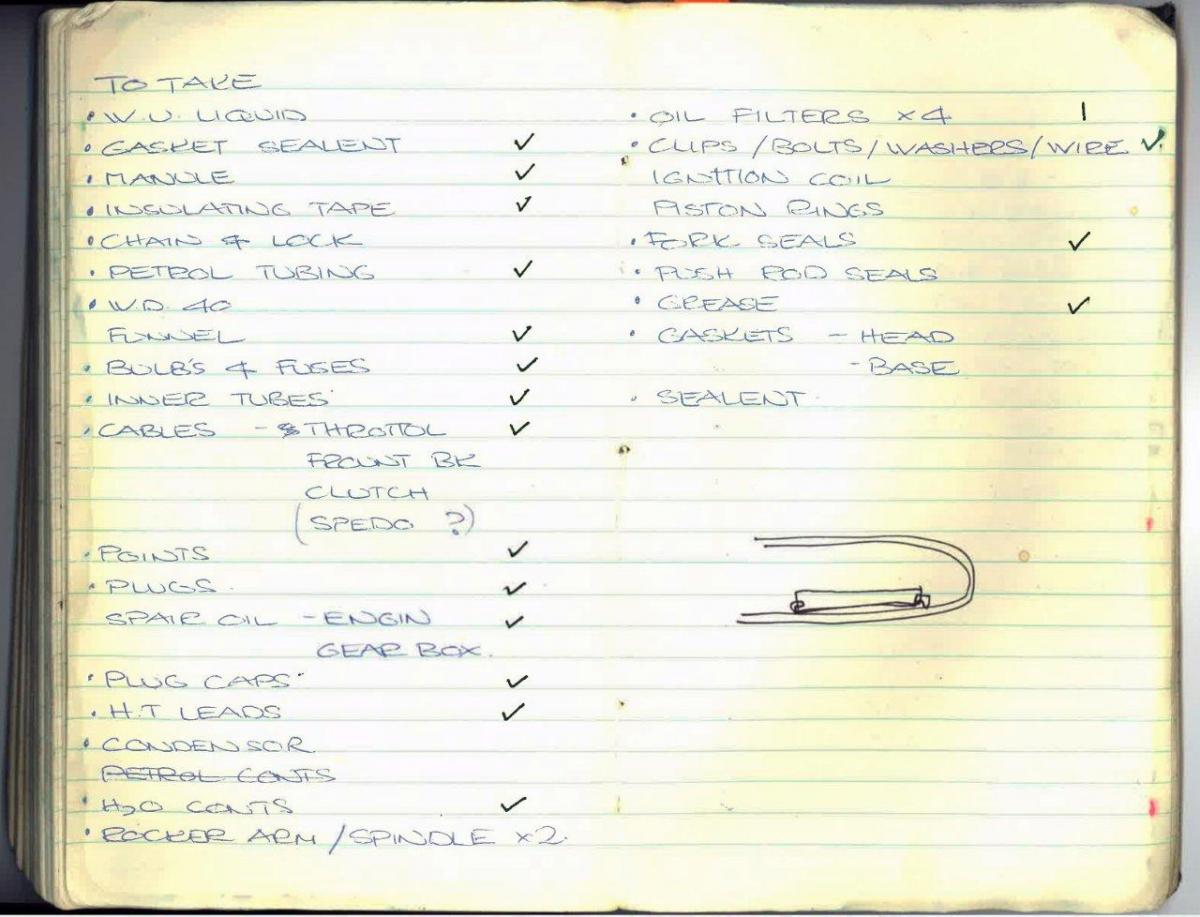 TO TAKE
• W.U. LIQUID
• GASKET SEALENT ✓
• MANULE ✓
• INSULATING TAPE ✓
• CHAIN & LOCK
• PETROL TUBING ✓
• W.D. 40
FUNNEL ✓
• BULB'S & FUSES ✓
• INNER TUBES ✓
• CABLES - THROTTOL ✓
FROUNT BK
CLUTCH
(SPEDO ?)
• POINTS ✓
• PLUGS. ✓
SPAIR OIL - ENGIN ✓
GEAR BOX.
• PLUG CAPS ✓
• H.T LEADS ✓
• CONDENSOR
PETROL CONTS
• H2O CONTS ✓
• ROCKER ARM / SPINDLE x2.
• OIL FILTERS x4 1
• CLIPS / BOLTS / WASHERS / WIRE ✓
IGNITION COIL
PISTON RINGS
• FORK SEALS ✓
• PUSH ROD SEALS
• GREASE ✓
• GASKETS - HEAD
- BASE
• SEALENT